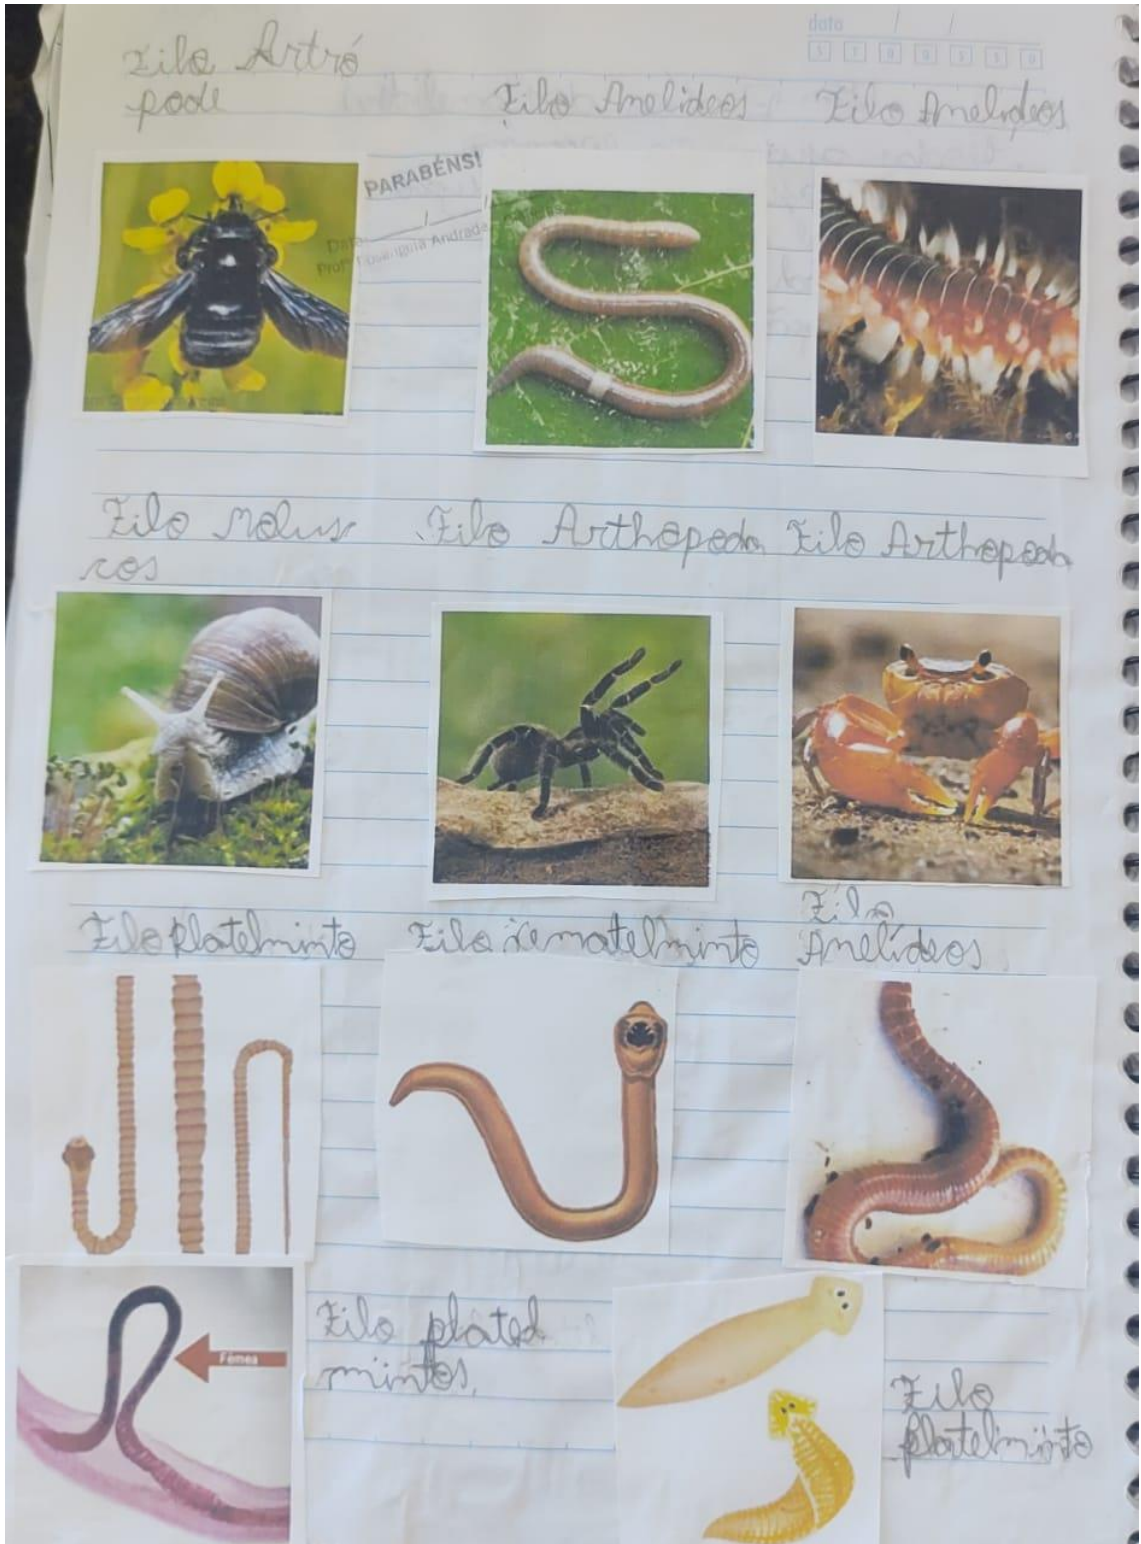 data / /
S T Q Q S S D
Filo Artró
pode
Filo Anelideos
Filo Anelideos
PARABÉNS!
Data / /
Profª Andrade
Filo Molus
cos
Filo Arthopoda
Filo Arthopoda
Filo platelminto
Filo nematelminto
Filo
Anelídeos
Fêmea
Filo platel
mintos.
Filo
platelminto